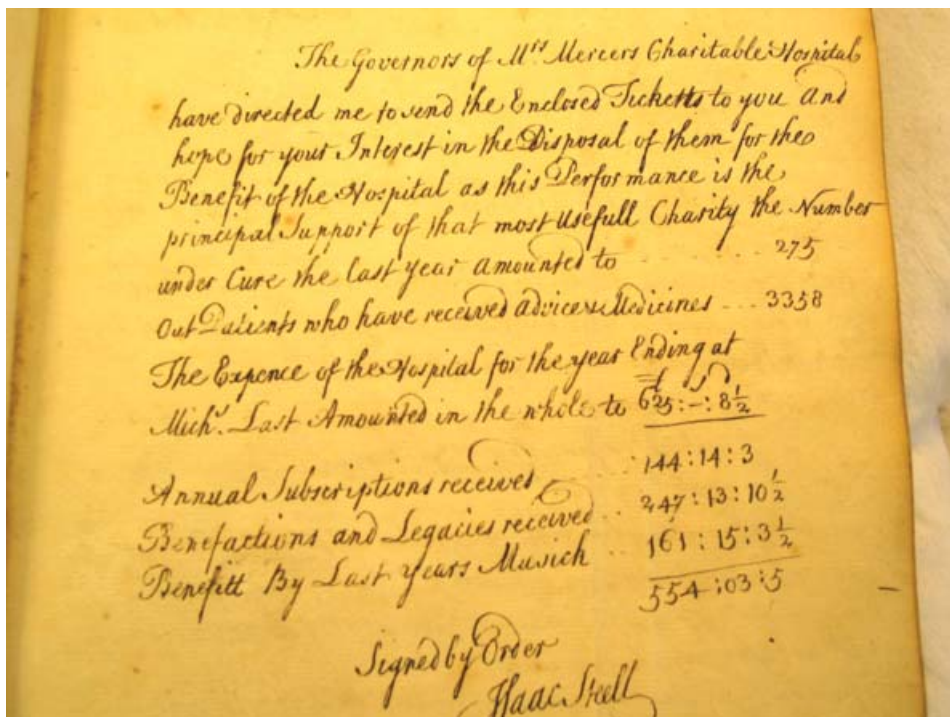 The Governors of Mrs Mercers Charitable Hospital
have directed me to send the Enclosed Ticketts to you and
hope for your Interest in the Disposal of them for the
Benefit of the Hospital as this Performance is the
principal Support of that most Usefull Charity the Number
under Cure the last year amounted to ........ 275
Out Patients who have received advice & Medicines ... 3358
The Expence of the Hospital for the year Ending at
£ s d
Mich.s Last Amounted in the whole to 625:-:8½
Annual Subscriptions received .. 144:14:3
Benefactions and Legacies received .. 247:13:10½
Benefitt By Last Years Musick .. 161:15:3½
554:03:5
Signed by Order
Isaac Steell